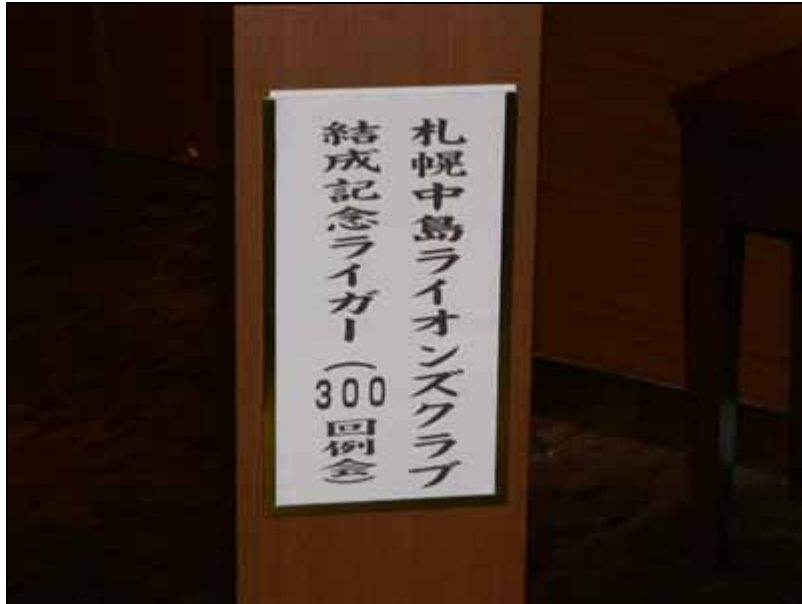 札幌中島ライオンズクラブ
結成記念ライガー（300回例会）